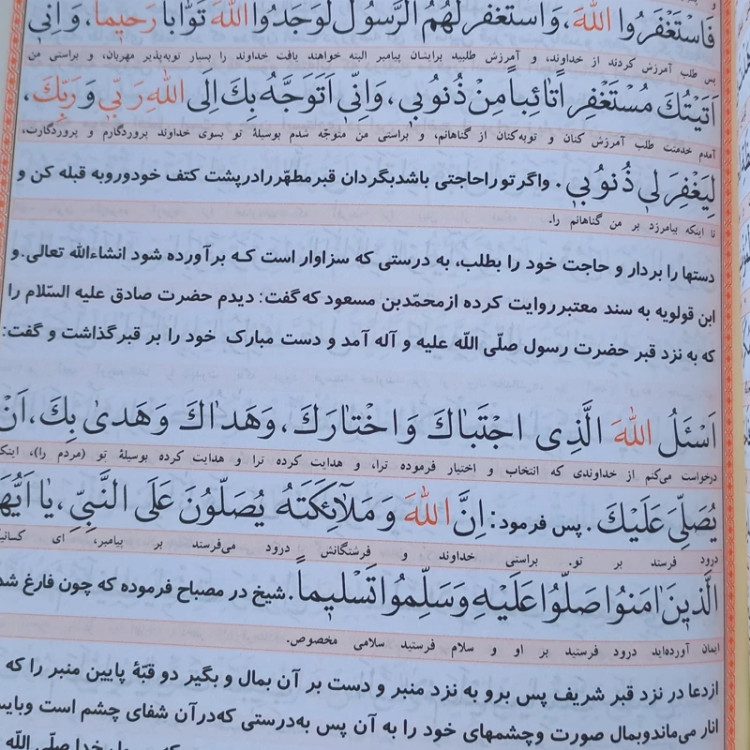 فَاسْتَغْفَرُوا اللهَ، وَاسْتَغْفَرَ لَهُمُ الرَّسُولُ لَوَجَدُوا اللهَ تَوّٰاباً رَحيماً، وَاِنّي
پس طلب آمرزش کردند از خداوند، و آمرزش طلبید برایشان پیامبر البته خواهند یافت خداوند را بسیار توبه‌پذیر مهربان، و براستی من
اَتَيْتُكَ مُسْتَغْفِراً تٰائِباً مِنْ ذُنُوبي، وَاِنّي اَتَوَجَّهُ بِكَ اِلَى اللهِ رَبّي وَ رَبِّكَ،
آمدم خدمتت طلب آمرزش کنان و توبه‌کنان از گناهانم، و براستی من متوجّه شدم بوسیلهٔ تو بسوی خداوند پروردگارم و پروردگارت،
لِيَغْفِرَ لي ذُنُوبي. واگر تو را حاجتی باشد بگردان قبر مطهّر را در پشت کتف خود و رو به قبله کن و
تا اینکه بیامرزد بر من گناهانم را.
دستها را بردار و حاجت خود را بطلب، به درستی که سزاوار است که برآورده شود انشاءالله تعالی. و
ابن قولویه به سند معتبر روایت کرده از محمّدبن مسعود که گفت: دیدم حضرت صادق علیه السّلام را
که به نزد قبر حضرت رسول صلّی الله علیه و آله آمد و دست مبارک خود را بر قبر گذاشت و گفت:
اَسْئَلُ اللهَ الَّذِى اجْتَبٰاكَ وَاخْتٰارَكَ، وَهَدٰاكَ وَهَدىٰ بِكَ، اَنْ
درخواست می‌کنم از خداوندی که انتخاب و اختیار فرموده ترا، و هدایت کرده ترا و هدایت کرده بوسیلهٔ تو (مردم را)، اینکه
يُصَلِّىَ عَلَيْكَ. پس فرمود: اِنَّ اللهَ وَ مَلٰآئِكَتَهُ يُصَلُّونَ عَلَى النَّبِيِّ، يٰا اَيُّهَا
درود فرستد بر تو. براستی خداوند و فرشتگانش درود می‌فرستد بر پیامبر، ای
الَّذينَ اٰمَنُوا صَلُّوا عَلَيْهِ وَسَلِّمُوا تَسْليماً. شیخ در مصباح فرموده که چون فارغ
ایمان آورده‌اید درود فرستید بر او و سلام فرستید سلامی مخصوص.
از دعا در نزد قبر شریف پس برو به نزد منبر و دست بر آن بمال و بگیر دو قبّهٔ پایین منبر را که
انار می‌ماند و بمال صورت و چشمهای خود را به آن پس به‌درستی که در آن شفای چشم است